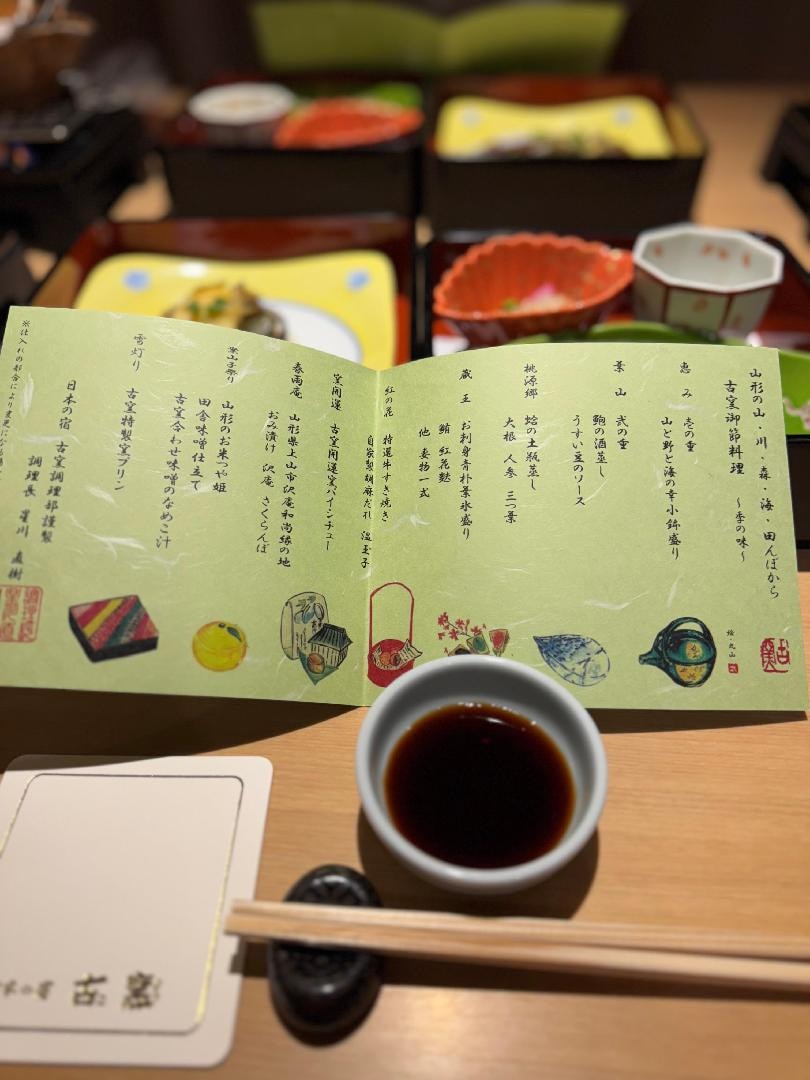 山形の山・川・森・海・田んぼから
古窯御節料理 ～季の味～
恵み 壱の重
山と野と海の幸小鉢盛り
葉山 弐の重
鮑の酒蒸し
うすい豆のソース
桃源郷 蛤の土瓶蒸し
大根 人参 三つ葉
蔵王 お刺身青朴葉氷盛り
鮪 紅花麩
他 妻物一式
紅の花 特選牛すき焼き
自家製胡麻だれ 温玉子
窯開運 古窯開運窯パイシチュー
春雨庵 山形県上山市沢庵和尚縁の地
おみ漬け 沢庵 さくらんぼ
案山子祭り 山形のお米つや姫
田舎味噌仕立て
古窯合わせ味噌のなめこ汁
雪灯り 古窯特製窯プリン
日本の宿 古窯調理部謹製
調理長 星川 直樹
※仕入れの都合により変更になる
絵・丸山
古窯
の宿 古窯